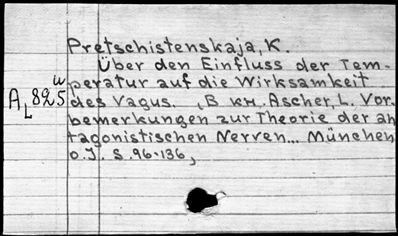 Pretschistenskaja, K.
Über den Einfluss der Tem-
peratur auf die Wirksamkeit
A L 825 u des Vagus. (В кн. Ascher, L. Vor-
bemerkungen zur Theorie der an
tagonistischen Nerven... München
o.J. S. 96-136,